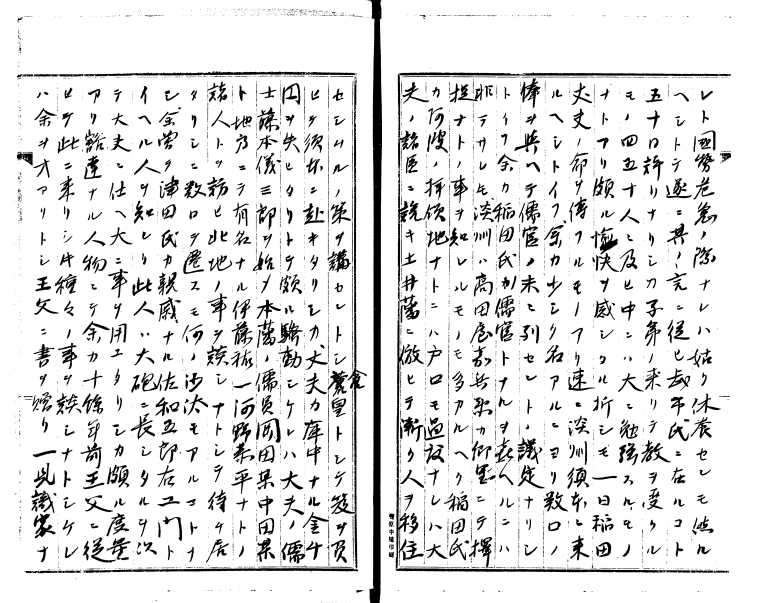 レト國勢危急ノ際ナレハ姑ク休養セシモ然ル
ヘシトテ遂ニ其ノ言ニ従ヒ武市氏ニ在ルコト
五十日許リナリシカ子弟ノ来リテ教ヲ受クル
モノ四五十人ニ及ヒ中ニハ大ニ勉強スルモノ
ナトアリ頗ル愉快ヲ感シタル折シモ一日稲田
大夫ノ命ヲ傳フルモノアリ速ニ淡州須本ニ来
ルヘシトイフ余カ少シク名アルニヨリ数口ノ
俸ヲ與ヘテ儒官ノ末ニ列セシトノ議定ナリシ
トイフ余カ稲田氏カ儒官トナルヲ喜ヘルニハ
非ラサレモ淡州ハ高田屋嘉兵衛カ御墨ニテ擇
捉ナトノ事ヲ知レルモノモ多アルヘク稲田氏
カ阿波ノ拝領地ナトニハ戸口モ過ナレハ大
夫ノ諸臣ニ説キ土井藩ニ倣ヒテ漸ク人ヲ移住
セシムルノ策ヲ講セントシ食糞皇トシテ笈ヲ負
ヒテ須本ニ赴キタリシカ大夫カ庫中ナル金千
円ヲ失ヒタリトテ頗ル騒動シケレハ大夫ノ儒
士藤本儀三郎ヲ始メ本藩ノ儒員岡田某中田某
ト地方ニテ有名ナル伊藤 一河野 平ナトノ
諸人トヲ訪ヒ此地ノ事ヲ談シナトシテ待チ居
タリシニ数日ヲ遷スモ何ノ沙汰モアルコトナ
シ余嘗テ津田氏カ親戚ナル佐和五郎右エ門ト
イヘル人ヲ知レリ此人ハ大砲ニ長シタルヲ以
テ大夫ニ仕ヘ大ニ事ヲ用ユタリシカ頗ル度量
アリ豁達ナル人物ニテ余カ十餘年前王父ニ従
ヒテ此ニ来リシ片種々ノ事ヲ談シナトシケレ
ハ余ヲ才アリトシ王父ニ書ヲ贈リ一見識家ナ